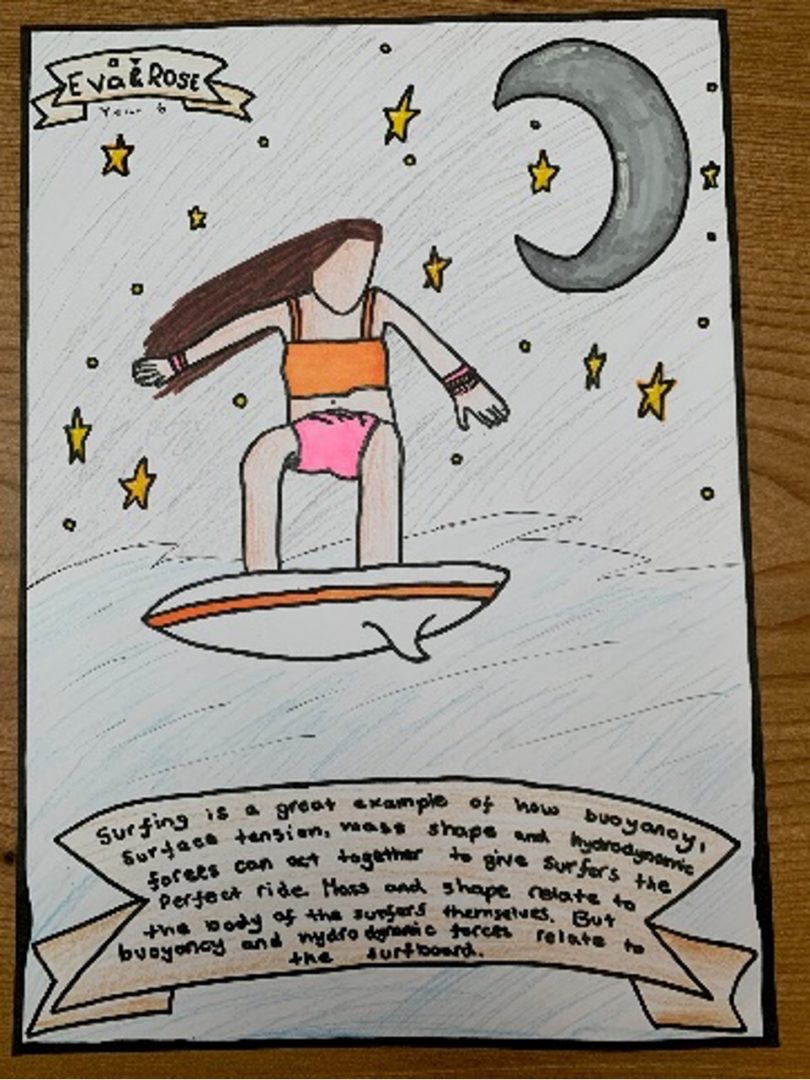 Eva & ROSE
Year 6
Surfing is a great example of how buoyancy,
surface tension, mass shape and hydrodynamic
forces can act together to give surfers the
Perfect ride. Mass and shape relate to
the body of the surfers themselves. But
buoyancy and hydrodynamic forces relate to
the surfboard.